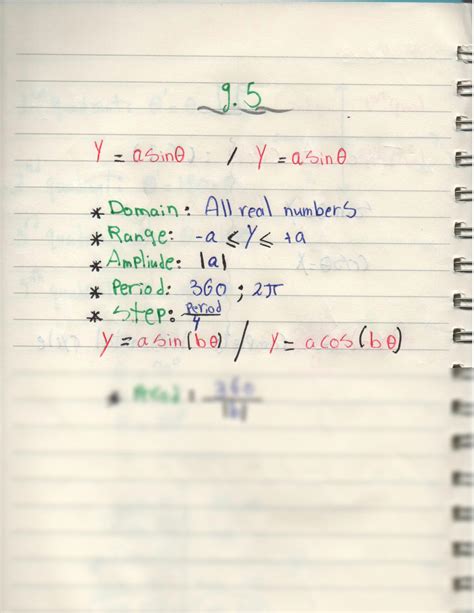 9.5
y = a sinθ / y = a sinθ
* Domain: All real numbers
* Range: -a ≤ y ≤ +a
* Ampliude: |a|
* Period: 360 ; 2π
* Step: Period/4
y = a sin(bθ) / y = a cos(bθ)